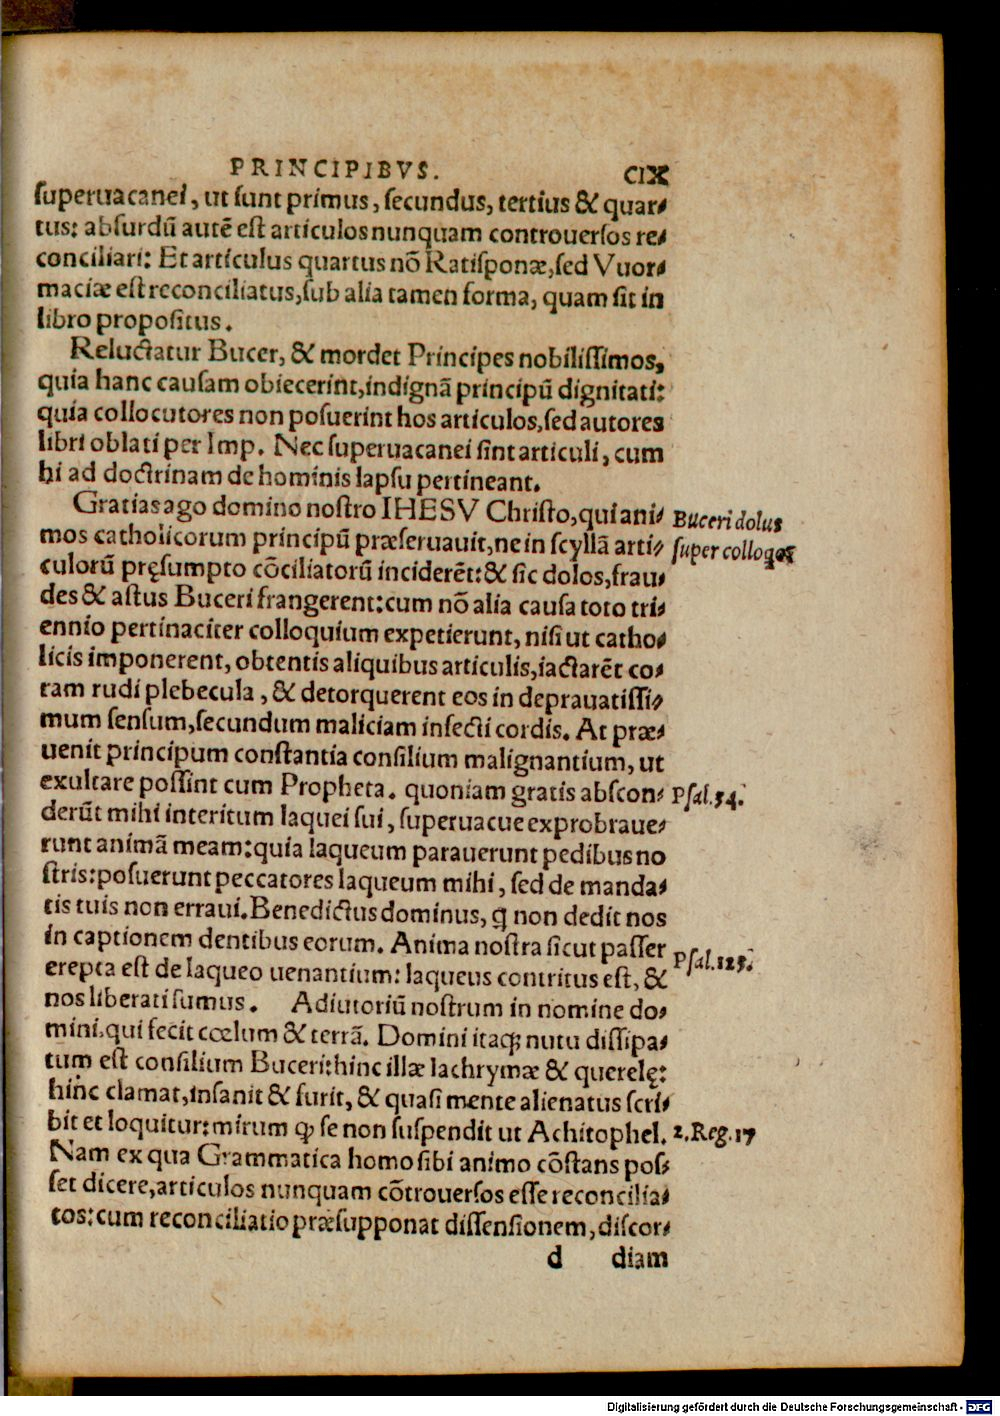 PRINCIPIBVS. CIX
superuacanei, ut sunt primus, secundus, tertius & quar-
tus: absurdū autē est articulos nunquam controuersos re-
conciliari: Et articulus quartus nō Ratisponæ, sed Vuor-
maciæ est reconciliatus, sub alia tamen forma, quam sit in
libro propositus.
Reluctatur Bucer, & mordet Principes nobilissimos,
quia hanc causam obiecerint, indignā principū dignitati:
quia collocutores non posuerint hos articulos, sed autores
libri oblati per Imp. Nec superuacanei sint articuli, cum
hi ad doctrinam de hominis lapsu pertineant.
Gratias ago domino nostro IHESV Christo, qui ani-
Buceri dolus
mos catholicorum principū præseruauit, ne in scyllā arti-
super colloqōs
culorū pręsumpto cōciliatorū inciderēt: & sic dolos, frau-
des & astus Buceri frangerent: cum nō alia causa toto tri-
ennio pertinaciter colloquium expetierunt, nisi ut catho-
licis imponerent, obtentis aliquibus articulis, iactarēt co-
ram rudi plebecula, & detorquerent eos in deprauatissi-
mum sensum, secundum maliciam infecti cordis. At præ-
uenit principum constantia consilium malignantium, ut
exultare possint cum Propheta. quoniam gratis abscon-
Psal.34.
derūt mihi interitum laquei sui, superuacue exprobraue-
runt animā meam: quia laqueum parauerunt pedibus no
stris: posuerunt peccatores laqueum mihi, sed de manda-
tis tuis non erraui. Benedictus dominus, ꝗ non dedit nos
in captionem dentibus eorum. Anima nostra sicut passer
Psal.123.
erepta est de laqueo uenantium: laqueus contritus est, &
nos liberati sumus. Adiutoriū nostrum in nomine do-
mini, qui fecit cœlum & terrā. Domini itaqꝫ nutu dissipa-
tum est consilium Buceri: hinc illæ lachrymæ & querelę:
hinc clamat, insanit & furit, & quasi mente alienatus scri-
bit et loquitur: mirum ꝙ se non suspendit ut Achitophel.
2.Reg.17
Nam ex qua Grammatica homo sibi animo cōstans pos-
set dicere, articulos nunquam cōtrouersos esse reconcilia-
tos: cum reconciliatio præsupponat dissensionem, discor-
d diam
Digitalisierung gefördert durch die Deutsche Forschungsgemeinschaft - DFG